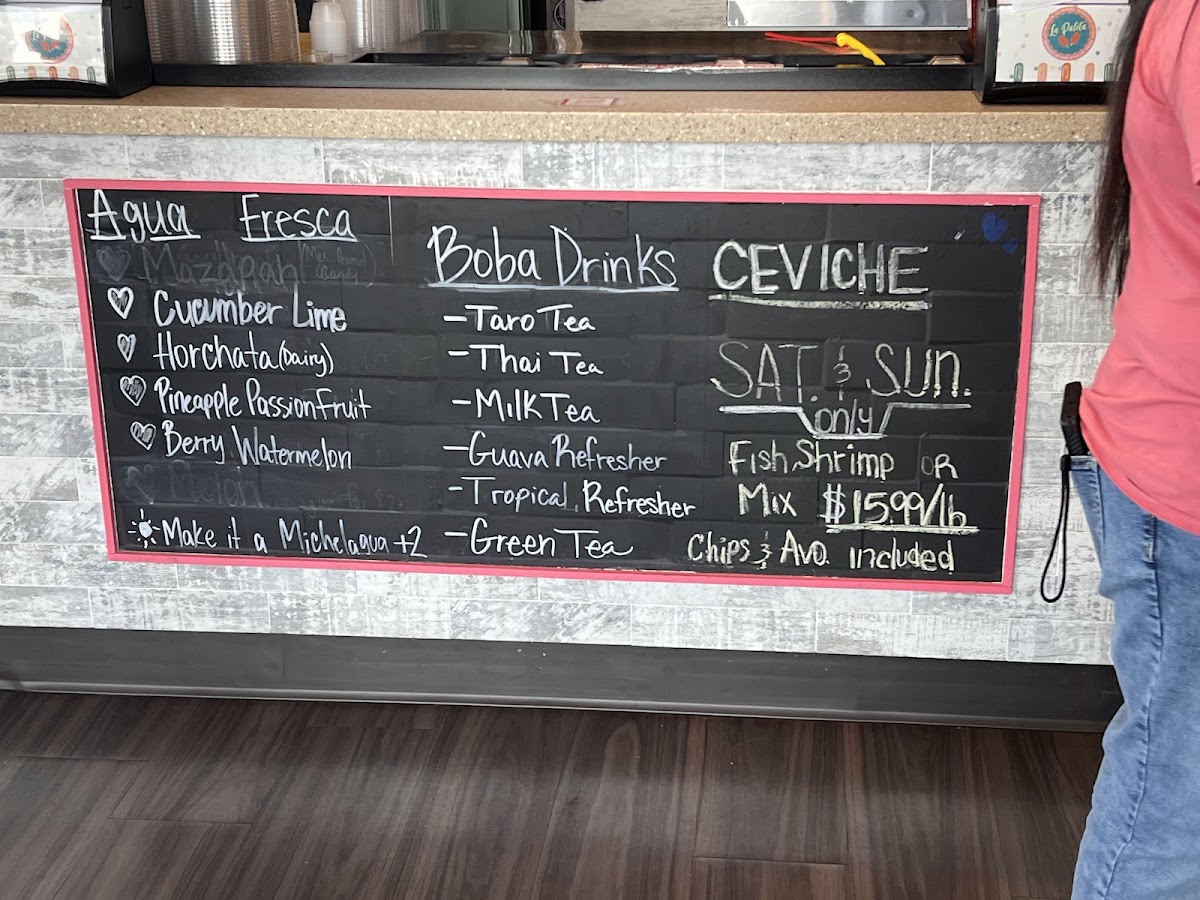 La Palita
Agua Fresca
Mazapan (Mex Peanut
Candy)
Cucumber Lime
Horchata (Dairy)
Pineapple Passionfruit
Berry Watermelon
Melon
Make it a Michelagua +2
Boba Drinks
- Taro Tea
- Thai Tea
- Milk Tea
- Guava Refresher
- Tropical Refresher
- Green Tea
CEVICHE
SAT. & SUN.
only
Fish, Shrimp OR
Mix $15.99/lb
Chips & Avo. included